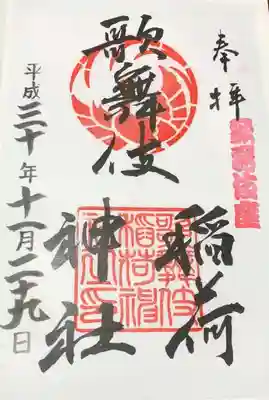 奉拝
歌舞伎座
歌舞伎
稲荷
神社
歌舞伎
稲荷神
社之印
平成三十年十一月二十九日